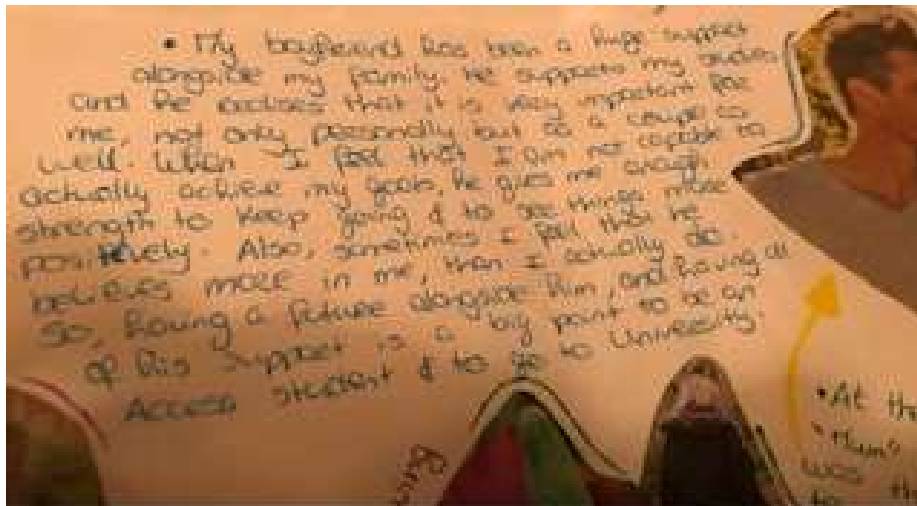 • My boyfriend has been a huge support
alongside my family. He supports my studies
and he realises that it is very important for
me, not only personally but as a couple as
well. When I feel that I am not capable to
actually achieve my goals, he gives me enough
strength to keep going & to see things more
positively. Also, sometimes I feel that he
believes more in me, than I actually do.
So, having a future alongside him, and having all
of his support is a big point to be an
Access student & to go to University.
• At the
was the
to